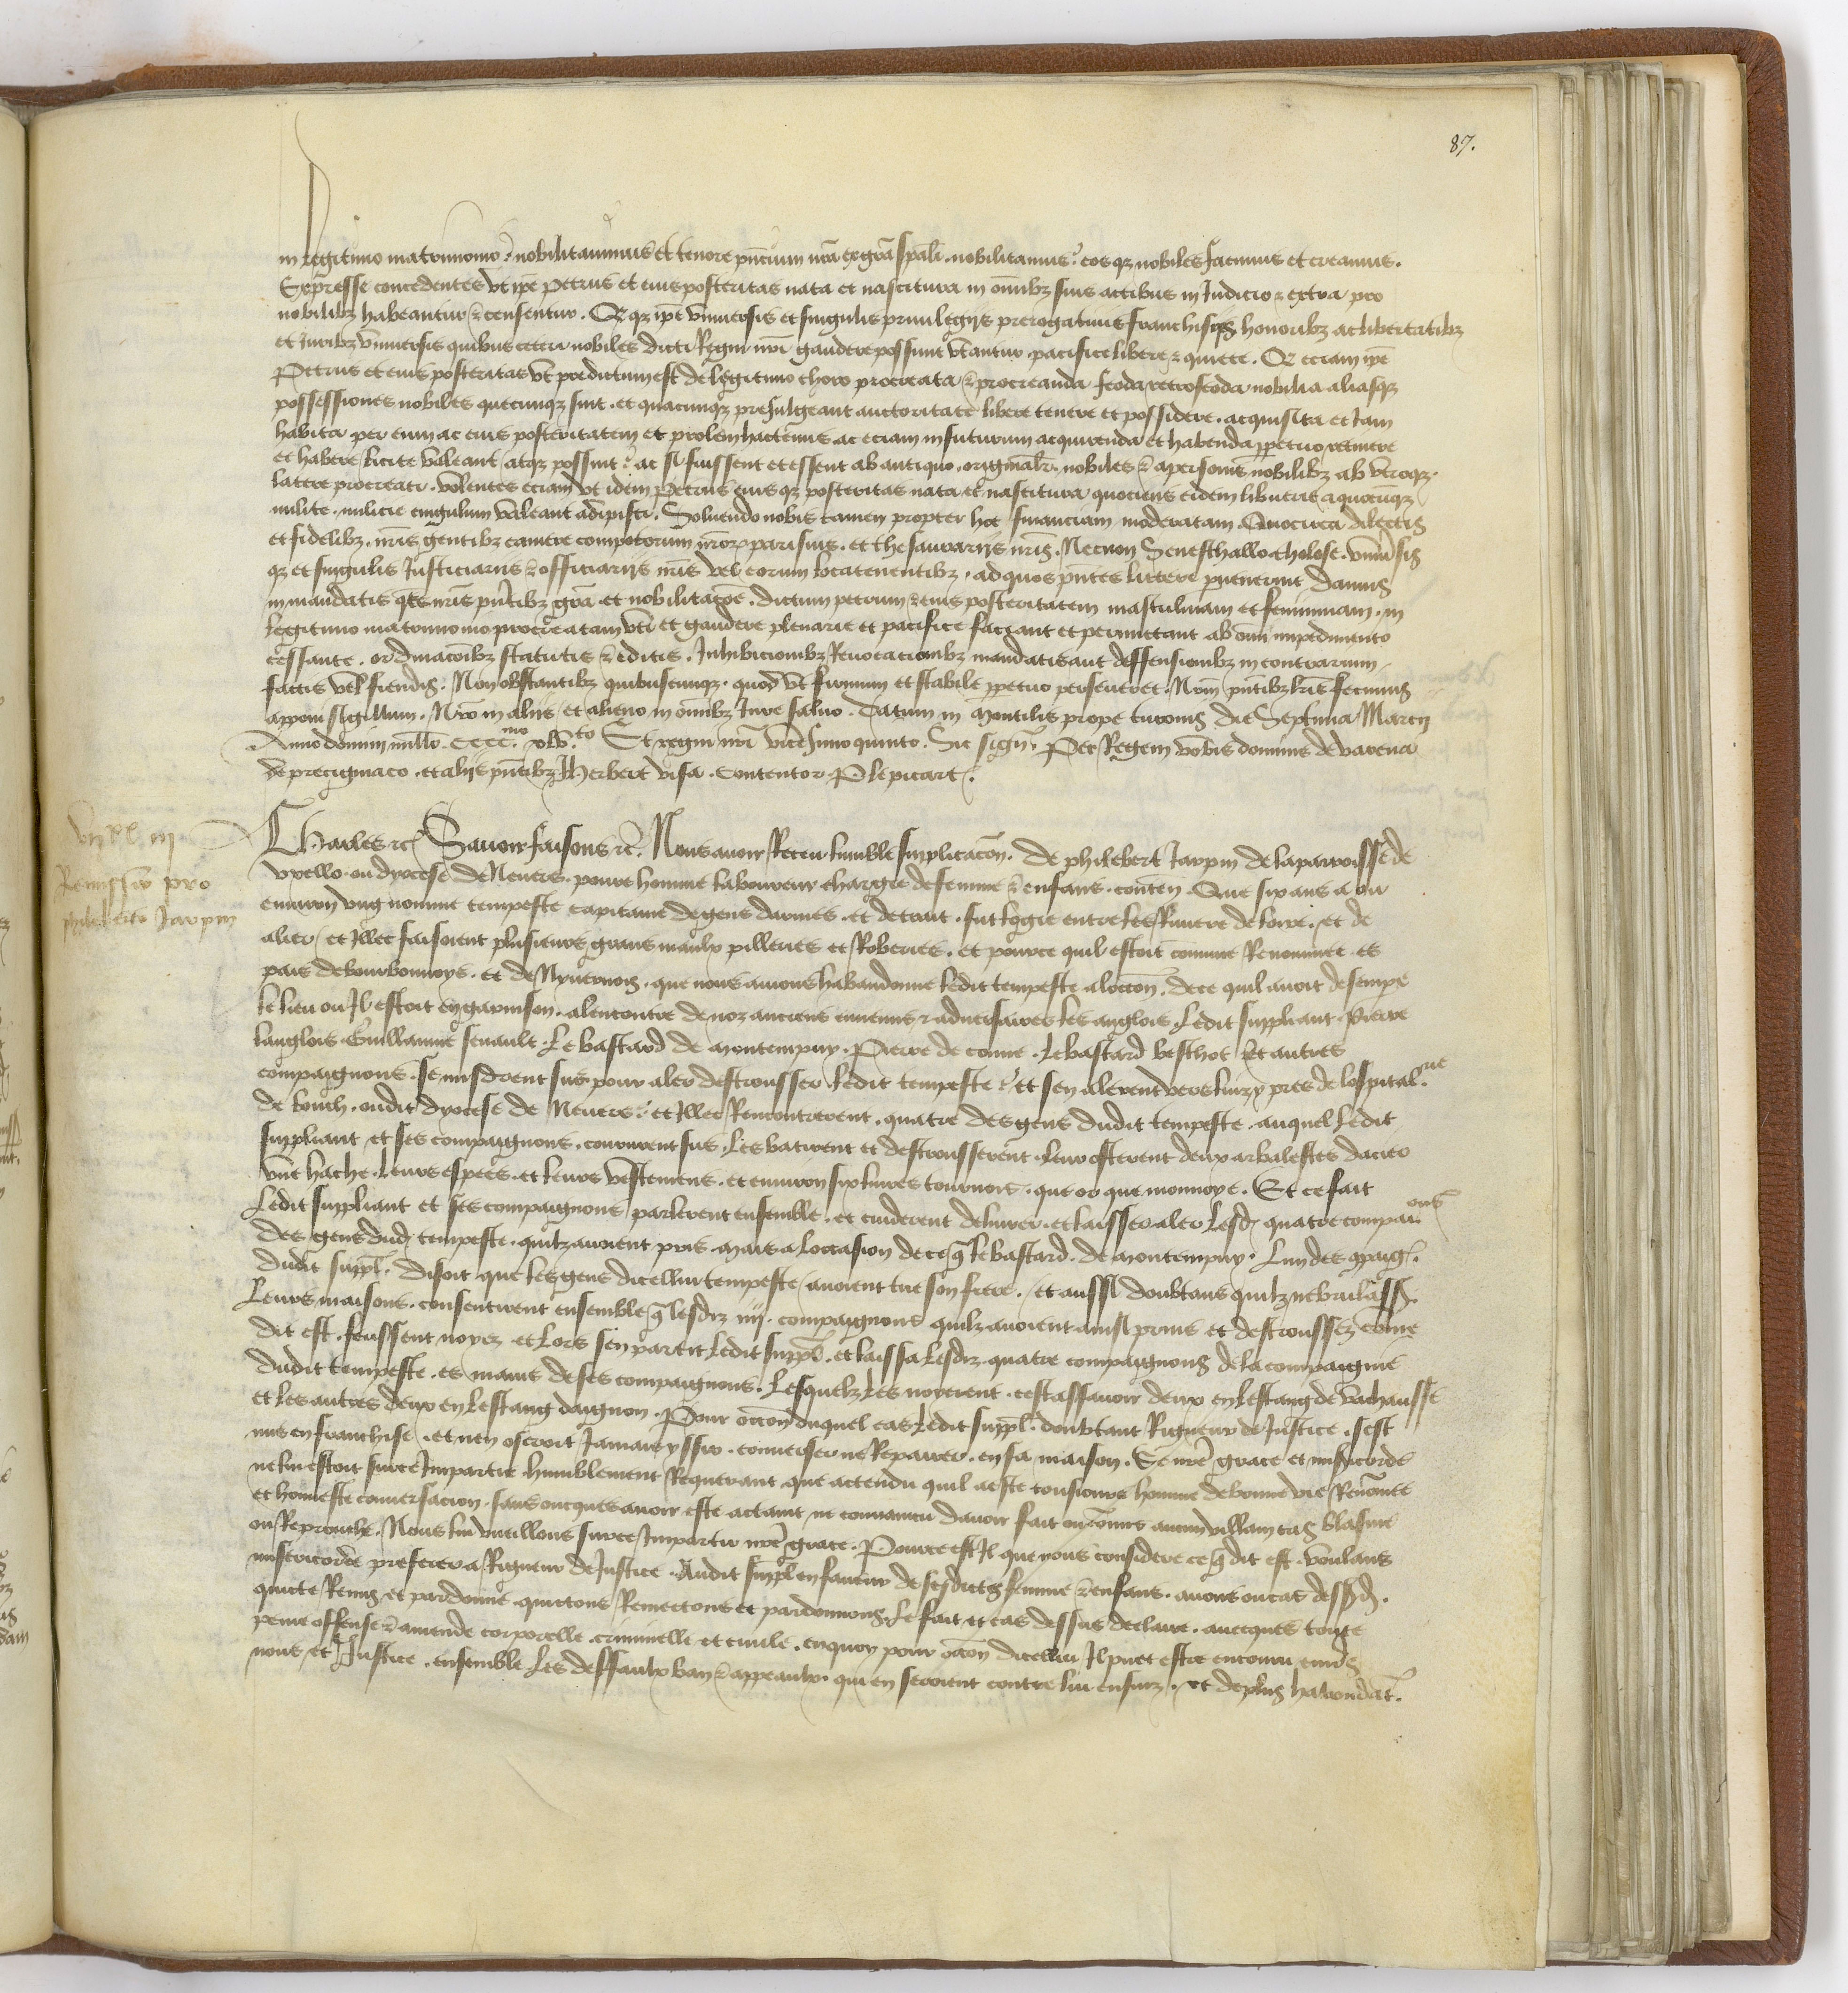 87.
in legitimo matrimonio nobilitauimus et tenore pñcium nrã ex grã spãli nobilitamus eosqz nobiles facimus et creamus .
Expresse concedentes vt ipẽ Petrus et eius posteritas nata et nascitura in oñibz suis actibus in Judicio z extra pro
nobilibz habeantur z censentur . Et qz ipẽ vniuersis et singulis priuilegijs prerogatiuis franchisijs honoribz ac libertatibz
et Juribz vniuersis quibus ceteri nobiles dicti Regni nrĩ gaudere possunt vtantur pacifice libere z quiete . Et eciam ipẽ
Petrus et eius posteritas vt predictum est de legitimo thoro procreata z procreanda feoda retrofeoda nobilia aliasqz
possessiones nobiles quecunqz sint . et quacunqz prefulgeant auctoritate libere tenere et possidere . acquisita et Jam
habita per eum ac eius posteritatem et prolem hactenus ac eciam in futurum acquirenda et habenda ppetuo retinere
et habere licite valeant atqz possint ac si fuissent et essent ab antiquo . originalr̃ . nobiles z a personis nobilibz ab vtroqz .
latere procreati . volentes eciam vt idem Petrus eius qz posteritas nata et nascitura quociens eidem libuerit a quocũqz
milite . milicie cingulum valeant adipisci . Soluendo nobis tamen propter hoc financiam moderatam . Quocirca dilectis
et fidelibz . nris̃ gentibz camere compotorum nr̃orz parisius . et thesaurarijs nris̃ . Necnon Senescallo tholose . vniũsis
qz et singulis Justiciarijs z officiarijs nris̃ vel eorum locatenentibz . ad quos pñtes littere puenerint Damus
in mandatis qts̃ nris̃ pñtibz grã et nobilitatõe . dictum petrum z eius posteritatem masculinam et femininam . in
legitimo matrimonio procreatam vti et gaudere plenarie et pacifice faciant et permittant ab oñi impedimento
cessante . ordinacõibz statutis z editis . Inhibicionibz Reuocacionibz mandatis aut deffensionibz in contrarium
factis vel fiendis . Non obstantibz quibuscumqz . quod vt firmum et stabile ppetuo perseueret . Nrm̃ pñtibz lris̃ fecimus
apponi sigillum . Nrõ in alijs et alieno in oñibz Jure saluo . Datum in Montilis prope turonis die Septima Marcij
Anno domini mill̃o . CCCC.mo xlv.to Et regni nrĩ vicesimo quinto . Sic sigñ . Per Regem vobis dominis de varena
de precigniaco . et alijs pñtibz J herbert visa . Contentor P le picart .
vijxx iij
Remissio pro
philiberto Jarpin
Charles zc̃ Sauoir faisons zc̃ . Nous auoir Receu humble supplicacõn . de philebert Jarpin de la parroisse de
vxello ou dyocese de Neuers . poure homme laboureur chargie de femme z enfans . conteñ Que six ans a ou
enuiron vng nomme tempeste capitaine de gens darmes . et de trait . fut logie entre les Riuiere de loire . et de
alier et Illec faisoient plusieurs grans maulx pilleries et Roberies . et pource quil estoit commune Renommee es
pais de bourbonnoys . et de Nyuernois . que nous auions habandonne ledit tempeste a loccoñ . de ce quil auoit desempe
le lieu ou Il estoit en garnison . alencontre de noz anciens ennemis z aduersaires les anglois ledit suppliant . Pierre
langlois Guillaume senault . Le bastard de Montempuy . Pierre de conne . le bastard beschot Et autres
compaignons . se misdrent sus pour aler destrousser ledit tempeste et sen alerent vers lury pres de lospital .
de bouth . oudit dyocese de Neuers et Illec Rencontrerent . quatre des gens dudit tempeste . auquel ledit
suppliant et ses compaignons . coururent sus . les batirent et destrousserent . leur osterent deux arbalestes dacier
vne hache . leurs espees . et leurs vestemens . et enuiron six liures tournois . que or que monnoye . Et ce fait
ledit suppliant et ses compaignons parlerent ensemble . et cuiderent deliurer . et laisser aler lesd̃ quatre compaiõns
des gens dud̃ tempeste . quilz auoient pris . Mais a loccasion de ce q̃ le bastard . de Montempuy . lun des cpaig̃ .
dudit suppl̃ . disoit que les gens dicellui tempeste auoient tue son frere . et aussi doubtans quilz ne brulassẽ
leurs maisons . consentirent ensemble q̃ lesdiz iiij . compaignons quilz auoient ainsi prins et destroussez com̃e
dit est . feussent noyez et lors sen partit ledit suppl̃ . et laissa lesdiz quatre compaignons de la compaignie
dudit tempeste . es mains de ses compaignons . lesquelz les noyerent . cestassauoir deux en lestang de vachausse
et les autres deux en lestang daignon . Pour occoñ duquel cas ledit suppl̃ . doubtant Rigueur de Justice . sest
mis en franchise . et nen oseroit Jamais yssir . conuerser ne Repairer . en sa maison . Se nr̃e grace et misericorde
ne lui estoit sur ce Impartie humblement Requerant que actendu quil a este tousiours homme de bonne vie Renõmee
et honneste conuersacion . sans oncques auoir este actaint ne conuaincu dauoir fait ou cõmis aucun villain cas blasme
ou Reprouche . Nous lui vueillons sur ce Impartir nr̃e grace . Pource est Il que nous considere ce q̃ dit est . voulans
misericorde preferer a Rigueur de Justice . Audit suppl̃ en faueur de sesdictes femme z enfans . auons ou cas dess̃d̃ .
quicte Remis et pardonne quictons Remectons et pardonnons . le fait et cas dessus declaire . auecques toute
peine offense z amende corporelle . criminelle et ciuile . en quoy pour occoñ dicellui Il puet estre encouru enũs
nous et Justice . ensemble les deffaulx ban z appeaulx . qui en seroient contre lui ensuiz . et de plus habondãt .